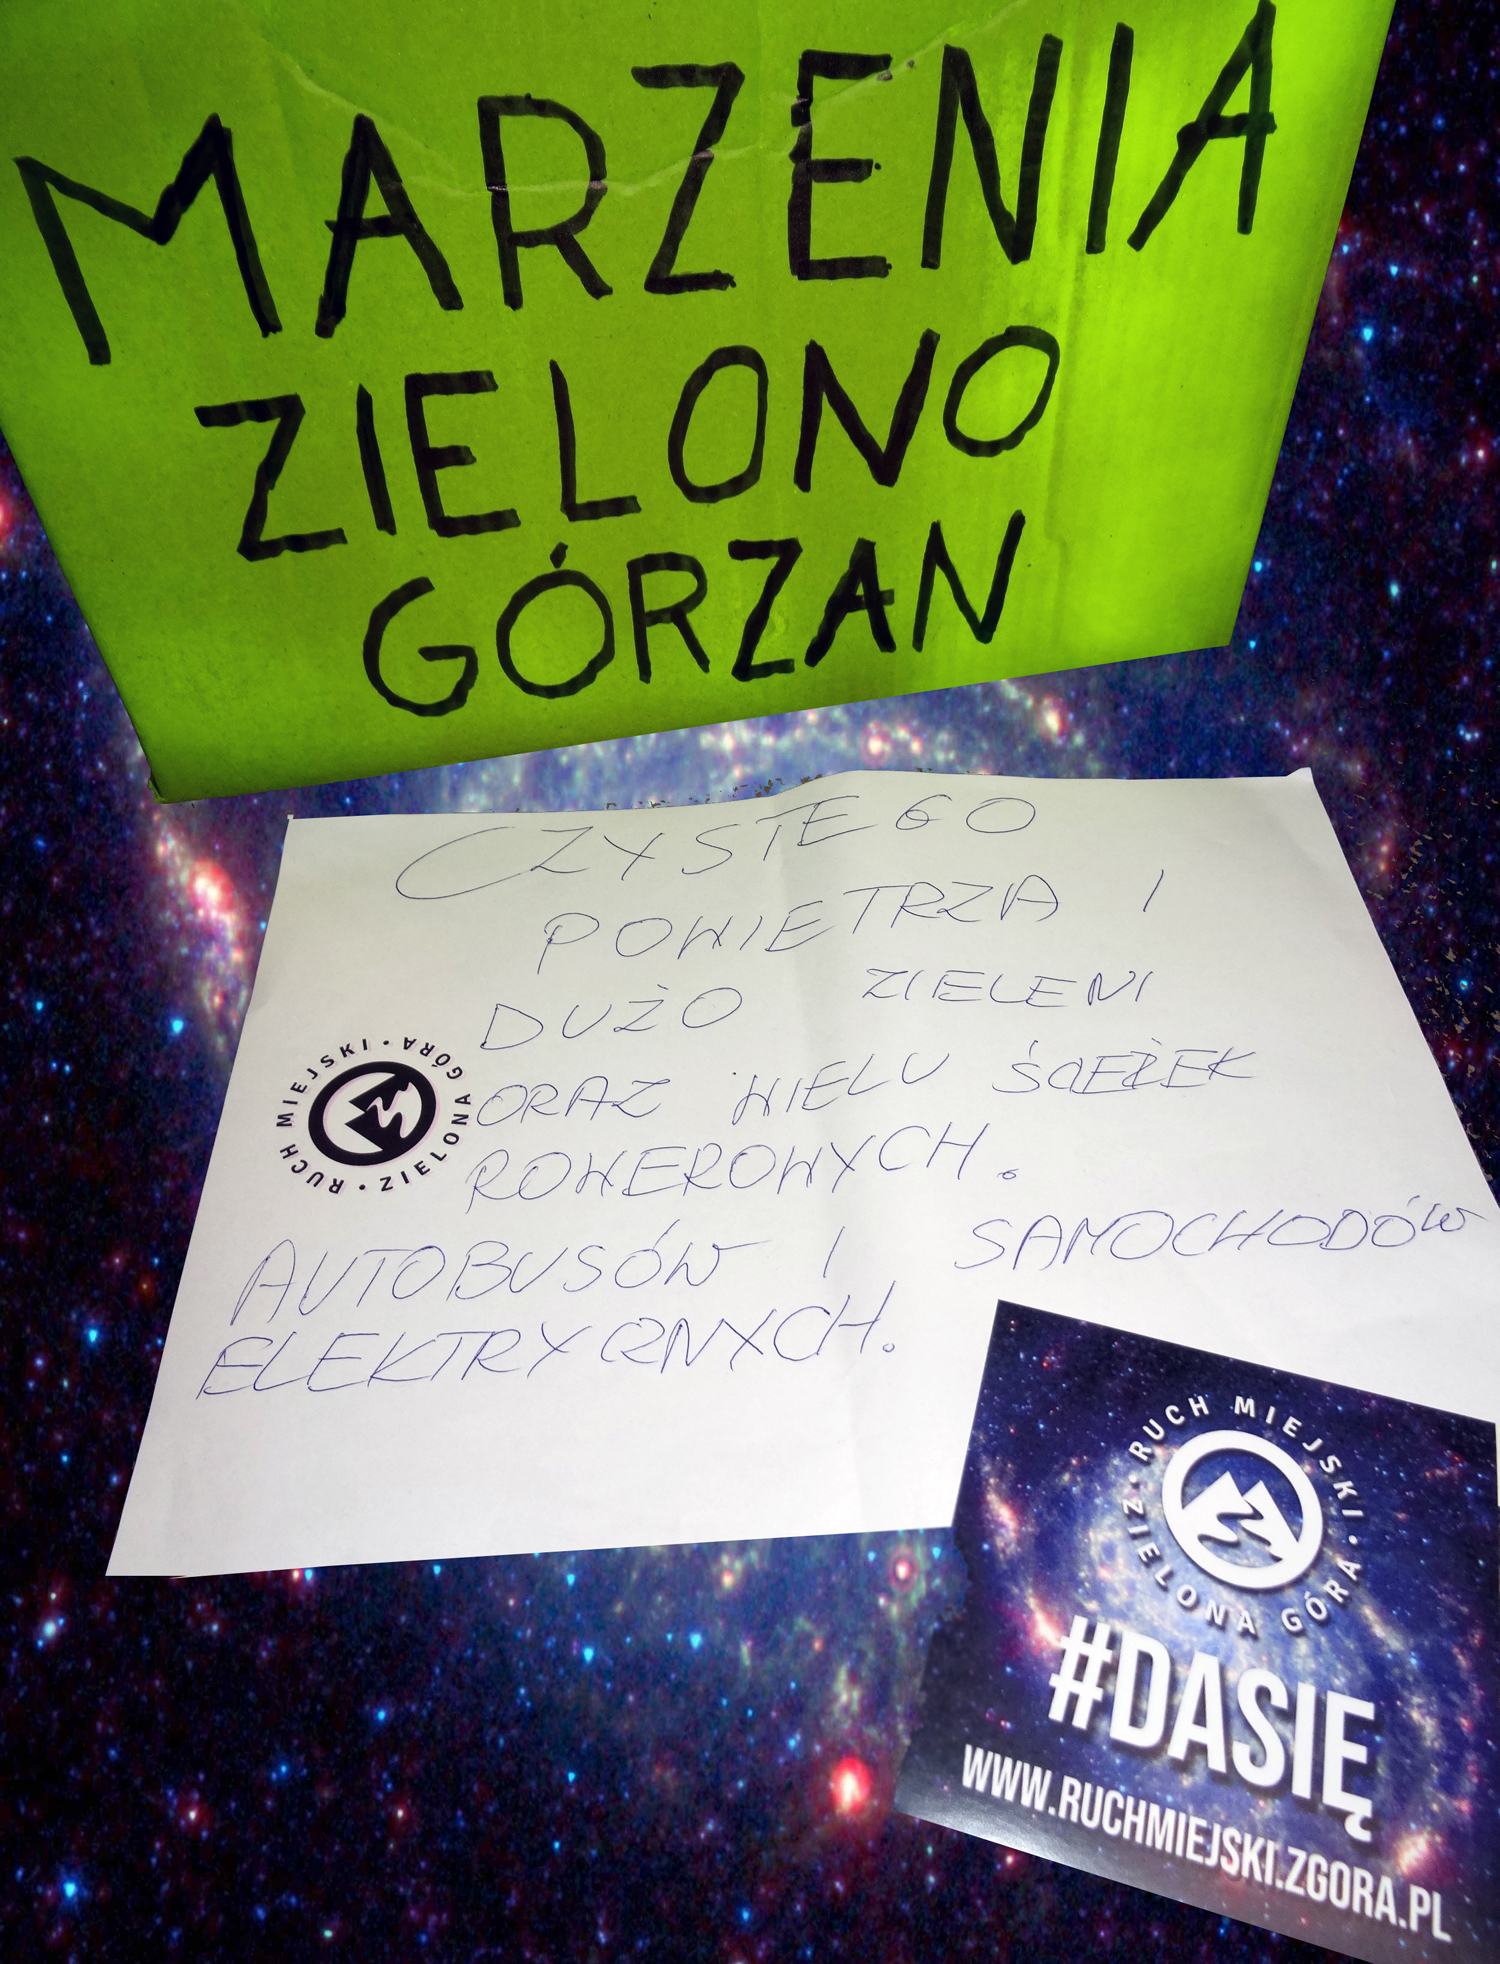 MARZENIA
ZIELONO
GÓRZAN
CZYSTEGO
POWIETRZA I
DUŻO ZIELENI
ORAZ WIELU ŚCIEŻEK
ROWEROWYCH.
AUTOBUSÓW I SAMOCHODÓW
ELEKTRYCZNYCH.
RUCH MIEJSKI • ZIELONA GÓRA •
RUCH MIEJSKI • ZIELONA GÓRA •
#DASIĘ
WWW.RUCHMIEJSKI.ZGORA.PL